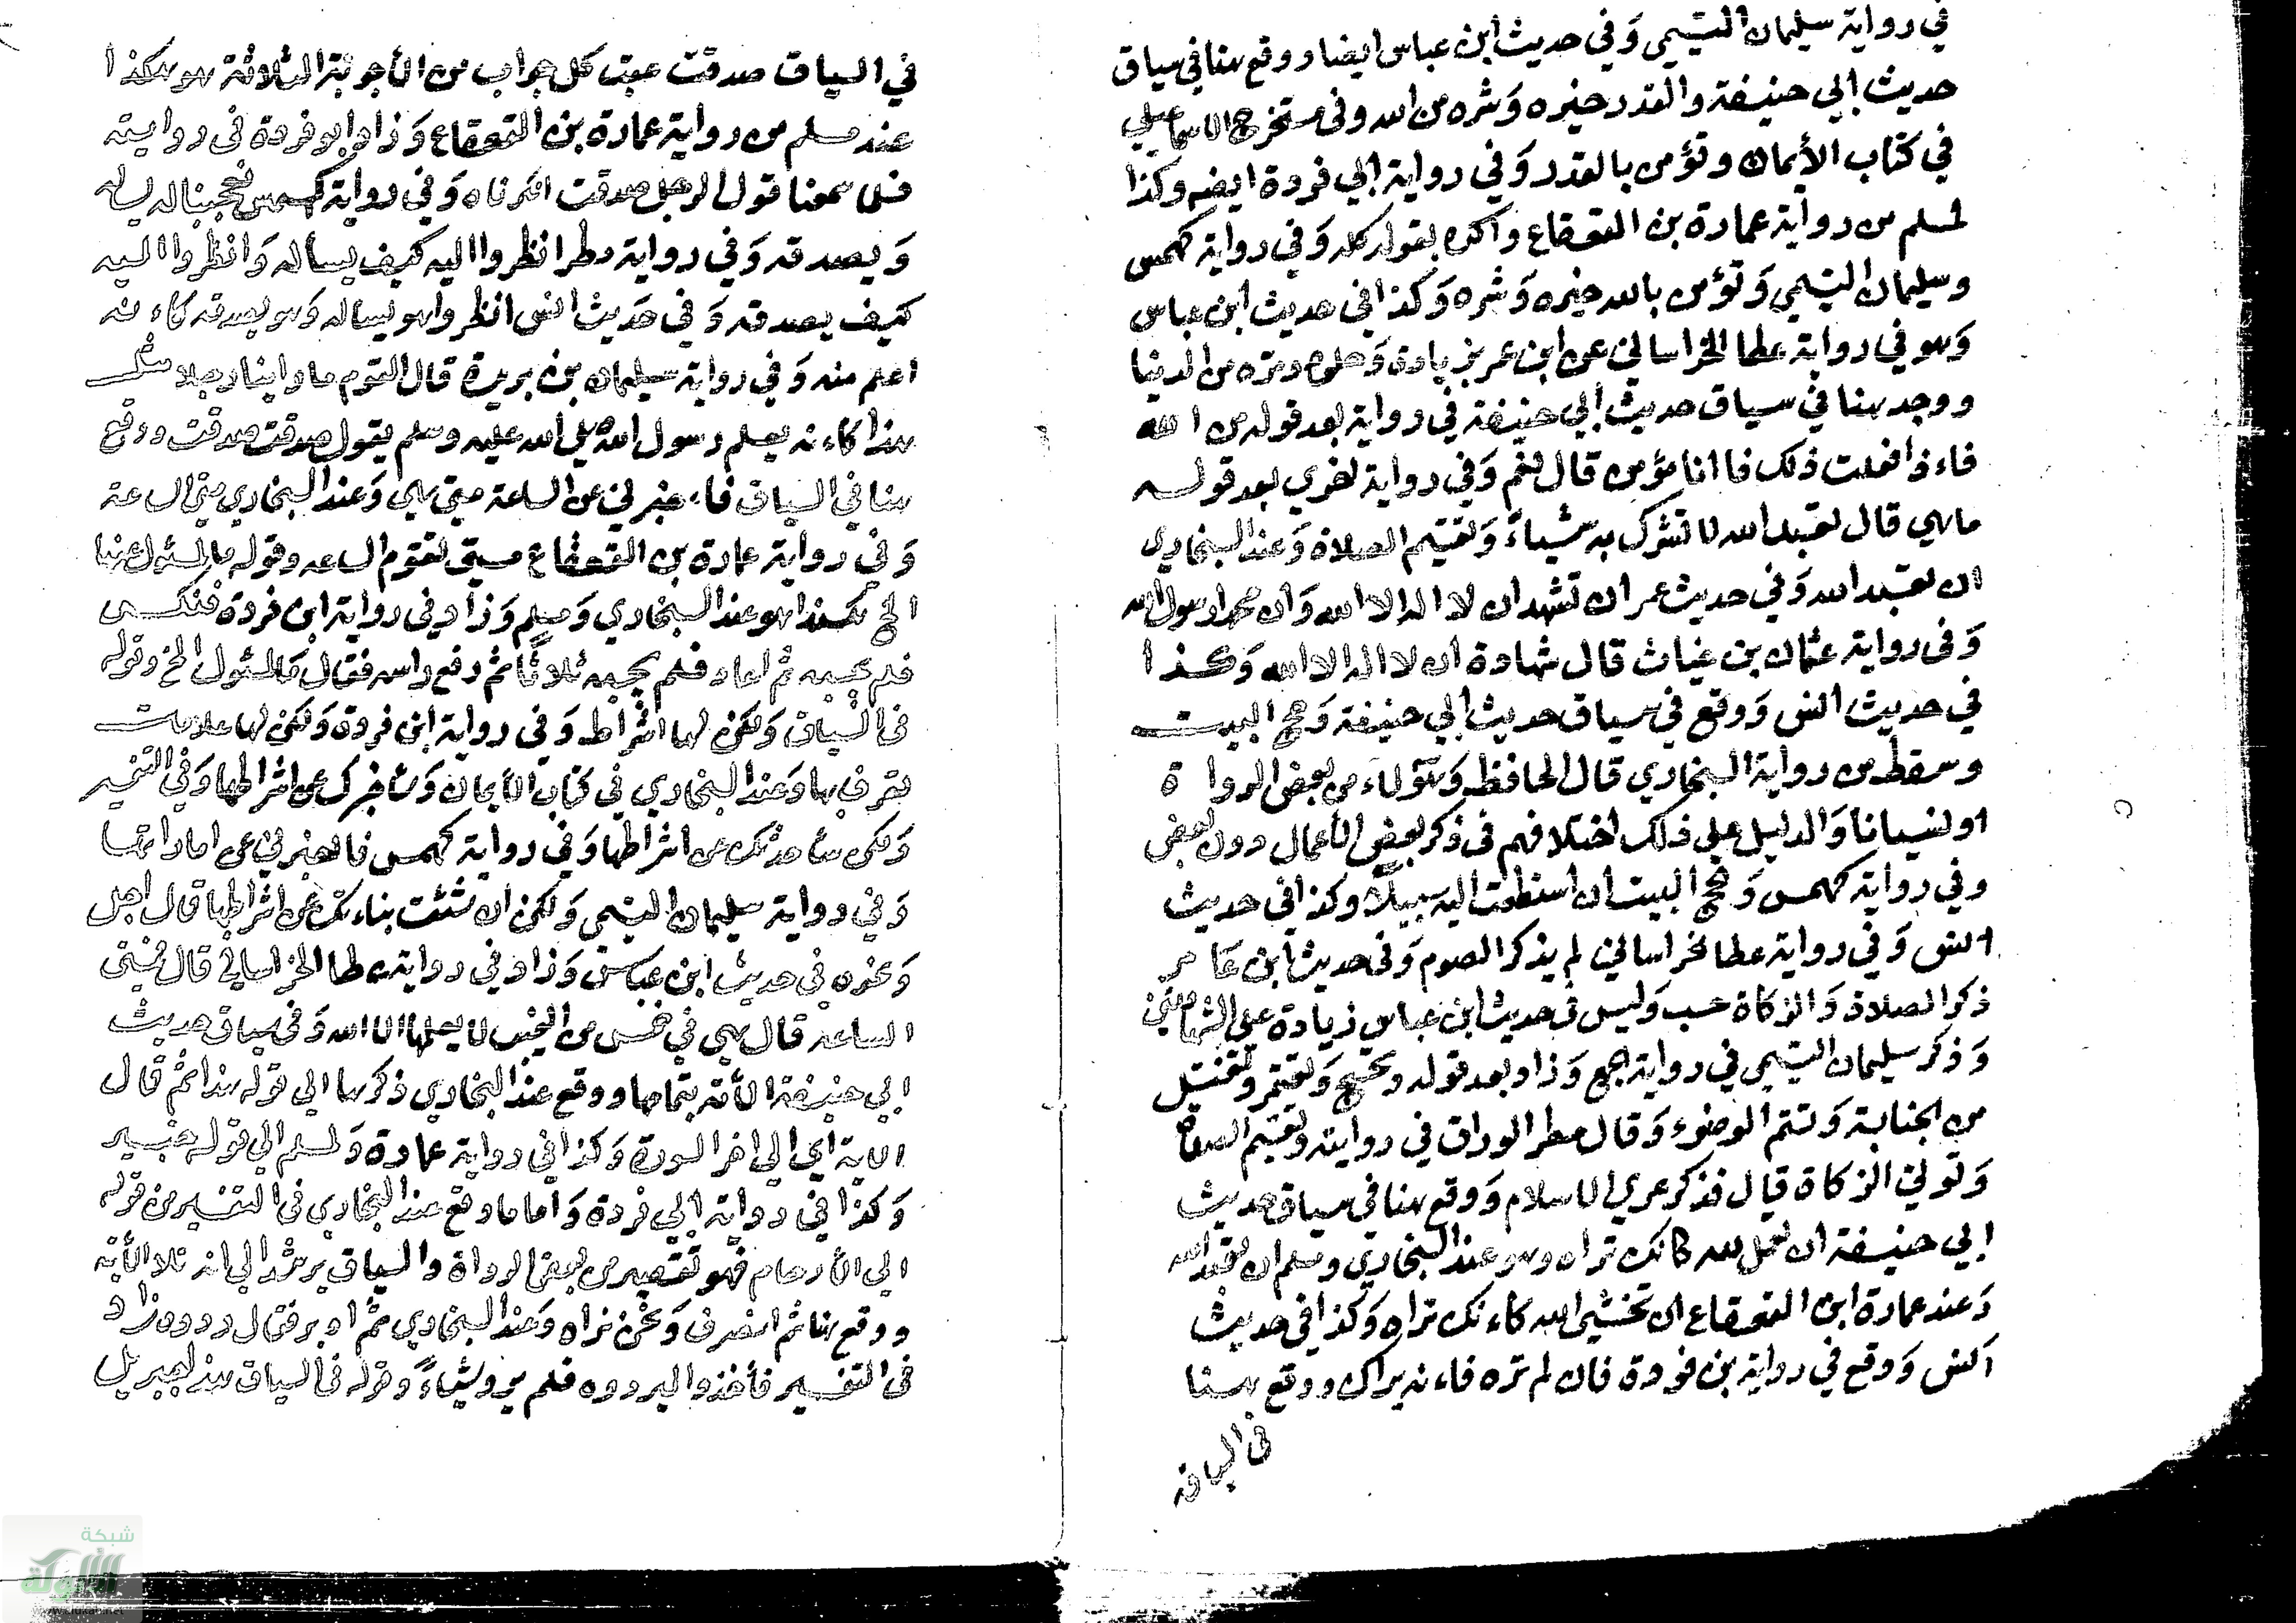 في رواية سليمان التيمي وَفي حديث ابن عباس ايضا ووقع هنا في سياق
حديث ابي حنيفة والقدر خيره وَشره من الله وفي مستخرج الاسماعيلي
في كتاب الأيمان وتؤمن بالقدر وَفي رواية ابي فروة ايضه وكذا
لمسلم من رواية عمارة بن القعقاع واكده بقوله كله وَفي رواية كهمس
وسليمان التيمي وَتؤمن بالقدر خيره وَشره وَكذا في حديث ابن عباس
وَهو في رواية عطا الخراساني عن ابن عمر بزيادة وَحلوه ومره من الله
ووجد هنا في سياق حديث ابي حنيفة في رواية بعد قوله من الله
فاءذا فعلت ذلك فاانا مؤمن قال نعم وَفي رواية اخري بعد قوله
ماهي قال تعبد الله لا تشرك به شياءً وَتقيم الصلاة وَعند البخاري
ان تعبد الله وَفي حديث عمر ان تشهد ان لا اله الا الله وَان محمدا رسول الله
وَفي رواية عثمان بن غياث قال شهادة ان لا اله الا الله وَكذا
في حديث انس وَوقع في سياق حديث ابي حنيفة وَحج البيت
وسقط من رواية البخاري قال الحافظ من بعض الرواة
او نسيانا وَالدليل علي ذلك اختلافهم في ذكر بعض الأعمال دون بعض
وفي رواية كهمس وَتحج البيت ان استطعت اليه سبيلاً وكذا في حديث
انس وَفي رواية عطا الخراساني لم يذكر الصوم وَفي حديث ابن عامر
ذكر الصلاة وَالزكاة حسب وَليس في حديث ابن عباس زيادة علي الشهادتين
وَذكر سليمان التيمي في رواية الجميع وَزاد بعد قوله وتحج وَتعتمر وتغتسل
من الجنابة وَتتم الوضوء وَقال مطر الوراق في روايته وتقيم الصلاة
وَتوتي الزكاة قال فذكر عري الاسلام وَوقع هنا في سياق حديث
ابي حنيفة ان تعمل لله كانك تراه وهو عند البخاري ومسلم ان تعبد الله
وَعند عمارة ابن القعقاع ان تخشي الله كاءنك تراه وَكذا في حديث
انس وَوقع في رواية بن فروة فان لم تره فاءنه يراك ووقع هنا
في السياق
في السياق صدقت عقب كل جواب من الأجوبة الثلاثة هو هكذا
عند مسلم من رواية عمارة بن القعقاع وَزاد ابو فروة في روايته
فلما سمعنا قول الرجل صدقت انكرناه وَفي رواية كهمس فعجبنا له يساله
وَيصدقه وَفي رواية مطر انظروا اليه كيف يساله وَانظروا اليه
كيف يصدقه وَفي حَديث انس انظروا هو يساله وَهو يصدقه كاءنه
اعلم منه وَفي رواية سليمان بن بريدة قال القوم ما راينا رجلا مثل
هذا كاءنه يعلم رسول الله صلي الله عليه وسلم يقول صدقت صدقت ووقع
هنا في السياق فاءخبرني عن الساعة متي هي وَعند البخاري متي الساعة
وَفي رواية عمارة بن القعقاع متي تقوم الساعه وقوله ما المسئول عنها
الخ هكذا هو عند البخاري وَمسلم وَزاد في رواية ابن فروة فنكس
فلم يجبه ثم اعاد فلم يجبه ثلاثًا ثم رفع راسه فقال ما المسئول الخ وقوله
في السياق وَلكن لها اشراط وَفي رواية ابن فروة وَلكن لها علامات
تعرف بها وَعند البخاري في كتاب الأيمان وَساخبرك عن اشراطها وَفي التفسير
وَلكن ساحدثك عن اشراطها وَفي رواية كهمس فاخبرني عن اماراتها
وَفي رواية سليمان التيمي وَلكن ان شئت نباءتك عن اشراطها قال اجل
وَنحوه في حديث ابن عباس وَزاد في رواية عطا الخراساني قال فمتي
الساعه قال هي في خمس من الغيب لا يعلمها الا الله وَفي سياق حديث
ابي حنيفة الأية بتمامها ووقع عند البخاري ذكرها الي قوله هذا ثم قال
الاية اي الي اخر السورة وَكذا في رواية عمارة وَلمسلم الي قوله خبير
وَكذا في رواية ابي فروة وَاما ما وقع عند البخاري في التفسير من قوله
الي الأرحام فهو تقصير من بعض الرواة والسياق يرشد الي انه تلا الأية
ووقع هنا ثم انصرف وَنحن نراه وَعند البخاري ثم ادبر فقال ردوه وزاد
في التفسير فأخذوا ليردوه فلم يروا شياءً وقوله في السياق هذا جبريل
شبكة
الألوكة
www.alukah.net